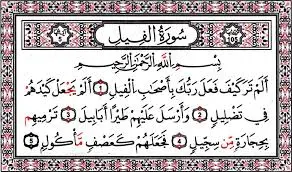 105 سُورَةُ الفِيلِ 5
بِسْمِ اللَّهِ الرَّحْمَٰنِ الرَّحِيمِ
أَلَمْ تَرَ كَيْفَ فَعَلَ رَبُّكَ بِأَصْحَابِ الْفِيلِ 1 أَلَمْ يَجْعَلْ كَيْدَهُمْ
فِي تَضْلِيلٍ 2 وَأَرْسَلَ عَلَيْهِمْ طَيْرًا أَبَابِيلَ 3 تَرْمِيهِم
بِحِجَارَةٍ مِّن سِجِّيلٍ 4 فَجَعَلَهُمْ كَعَصْفٍ مَّأْكُولٍ 5